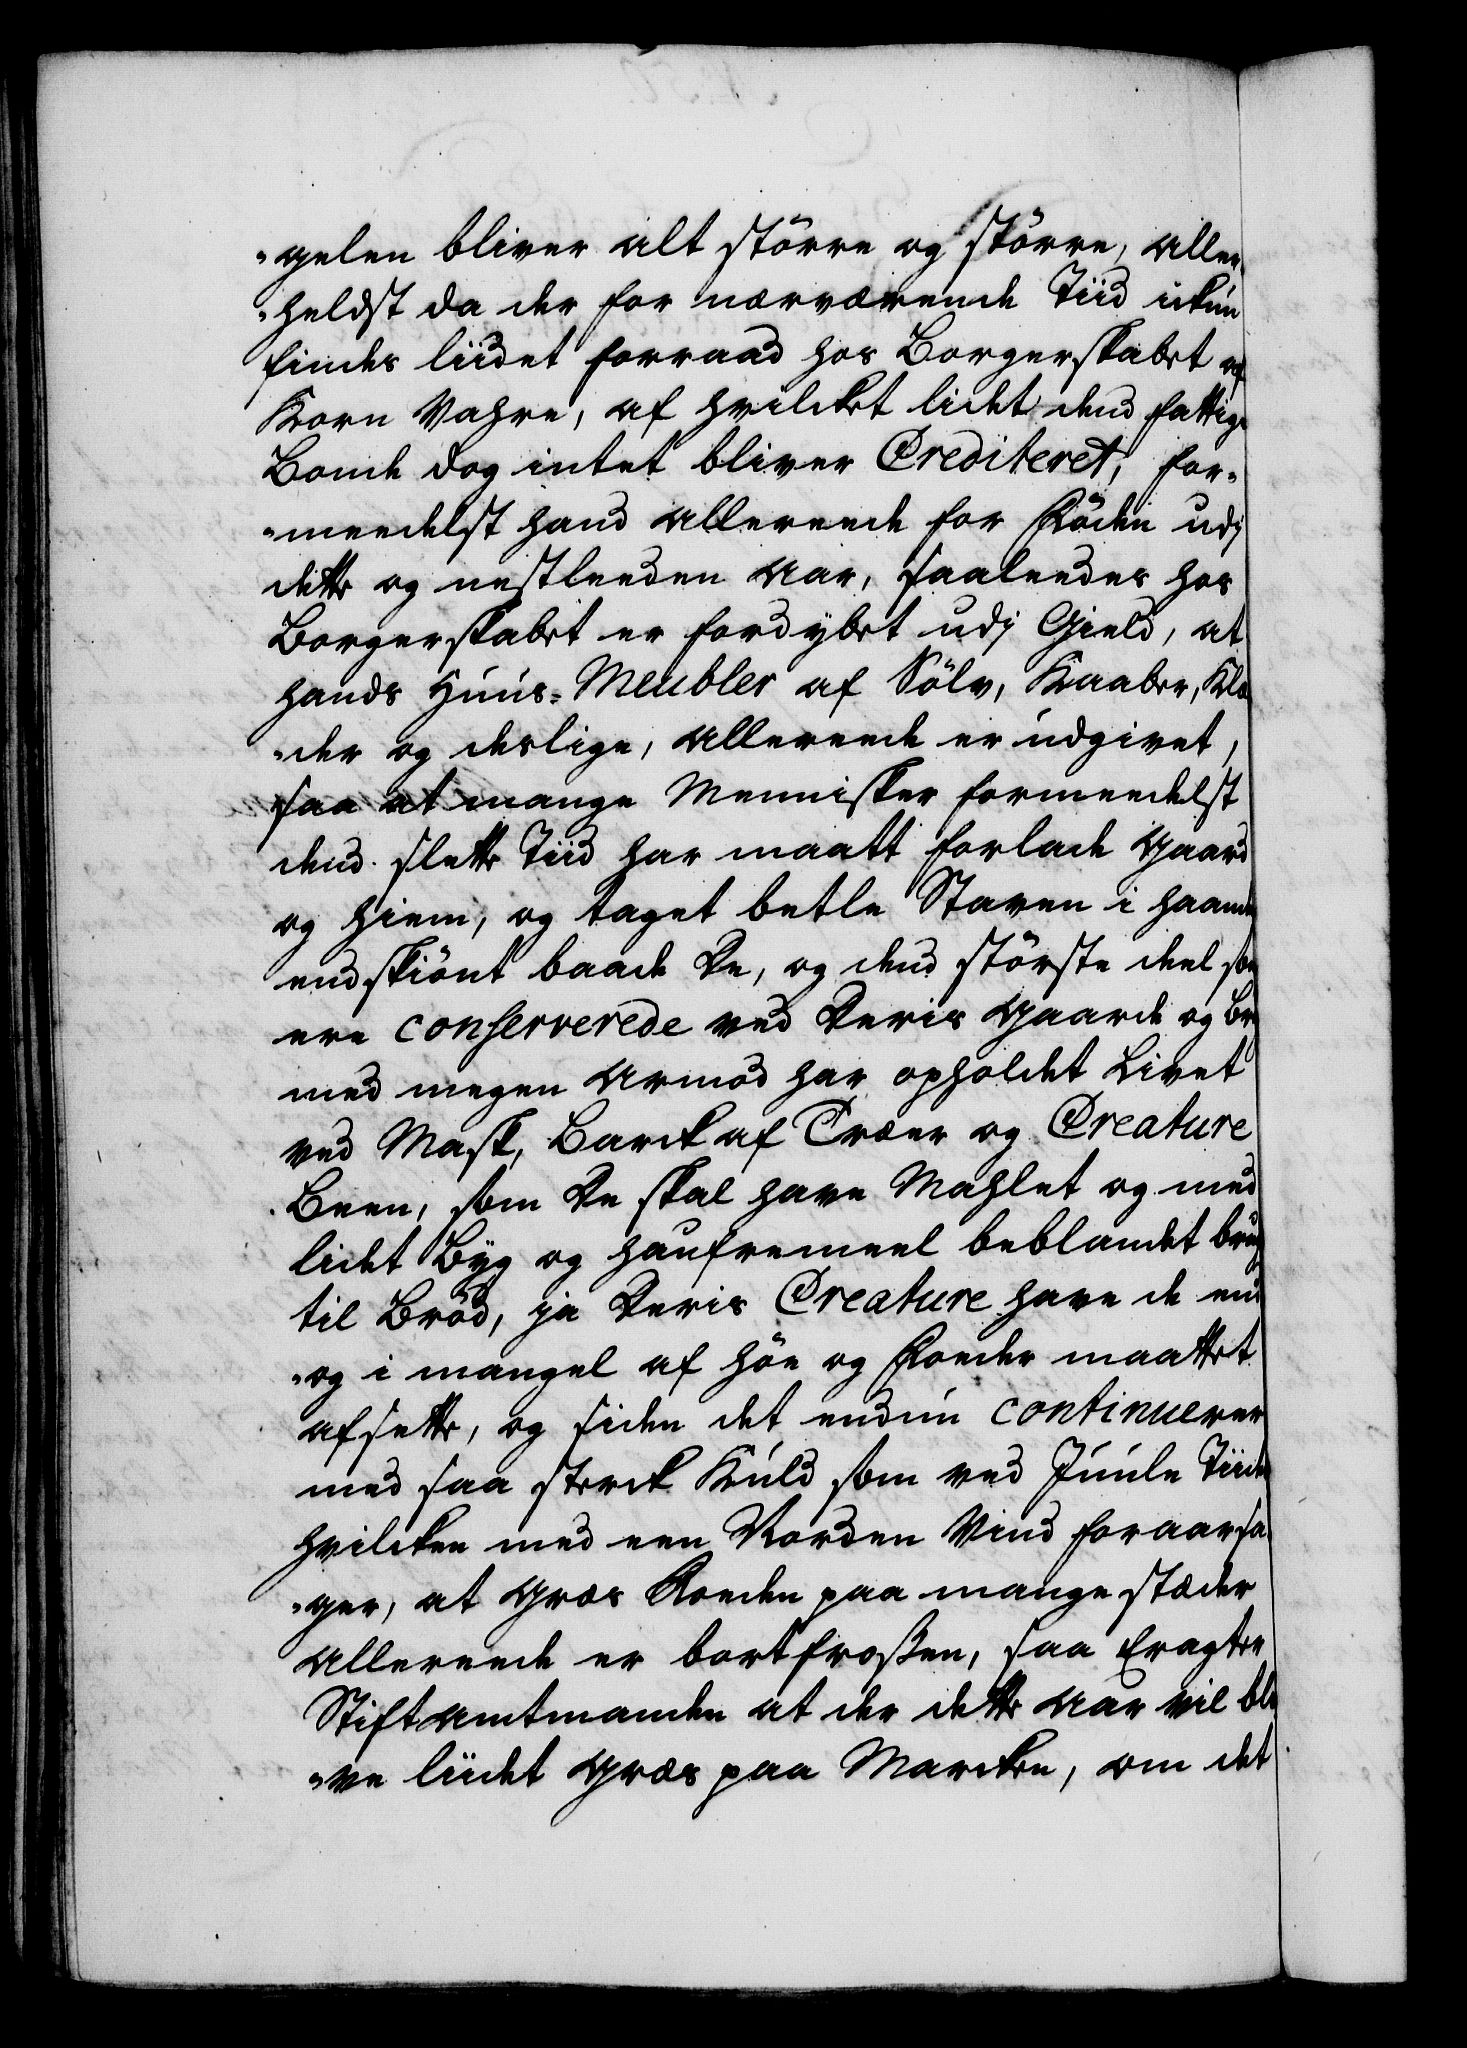 -gelen bliver alt större og större, aller-
-heldst da der for nærværende Tiid ickun
findes liidet forraad hos Borgerskabet af
Korn Vahre, af hvilcket lidet dend fattige
Bonde dog intet bliver Crediteret, for-
-meedelst hand allereede for Föden udj
dette og nestleeden Aar, saaleedes hos
Borgerskabet er fordybet udj Gield, at
hands Huus-Meubler af Sölv, Kaaber, Klæ-
-der og deslige, allereede er udgivet,
saa at mange Mennisker formeedelst
dend slette Tiid har maatt forlade Gaard
og Hiem, og taget betle Staven i Haande
endskiönt baade De, og dend störste deel som
ere conserverede ved Deris Gaarde og
med megen Armod har opholdet Livet
ved Mask, Barck af Træer og Creature
Been, som De skal have Mahlet og med
lidet Byg og Haufremeel beblandet brugt
til Bröd, ja Deris Creature have de end
-og i mangel af Höe og Foeder maattet
afsette, og siden det endnu continuerer
med saa sterck Kuld som ved Juule Tiider
hvilcken med een Norden Vind foraarsa-
-ger, at Græs Roeden paa mange stæder
allereede er bortfroßen, saa Eragter
Stiftamtmanden at der dette Aar vil bli-
-ve liidet Græs paa Marcken, om det